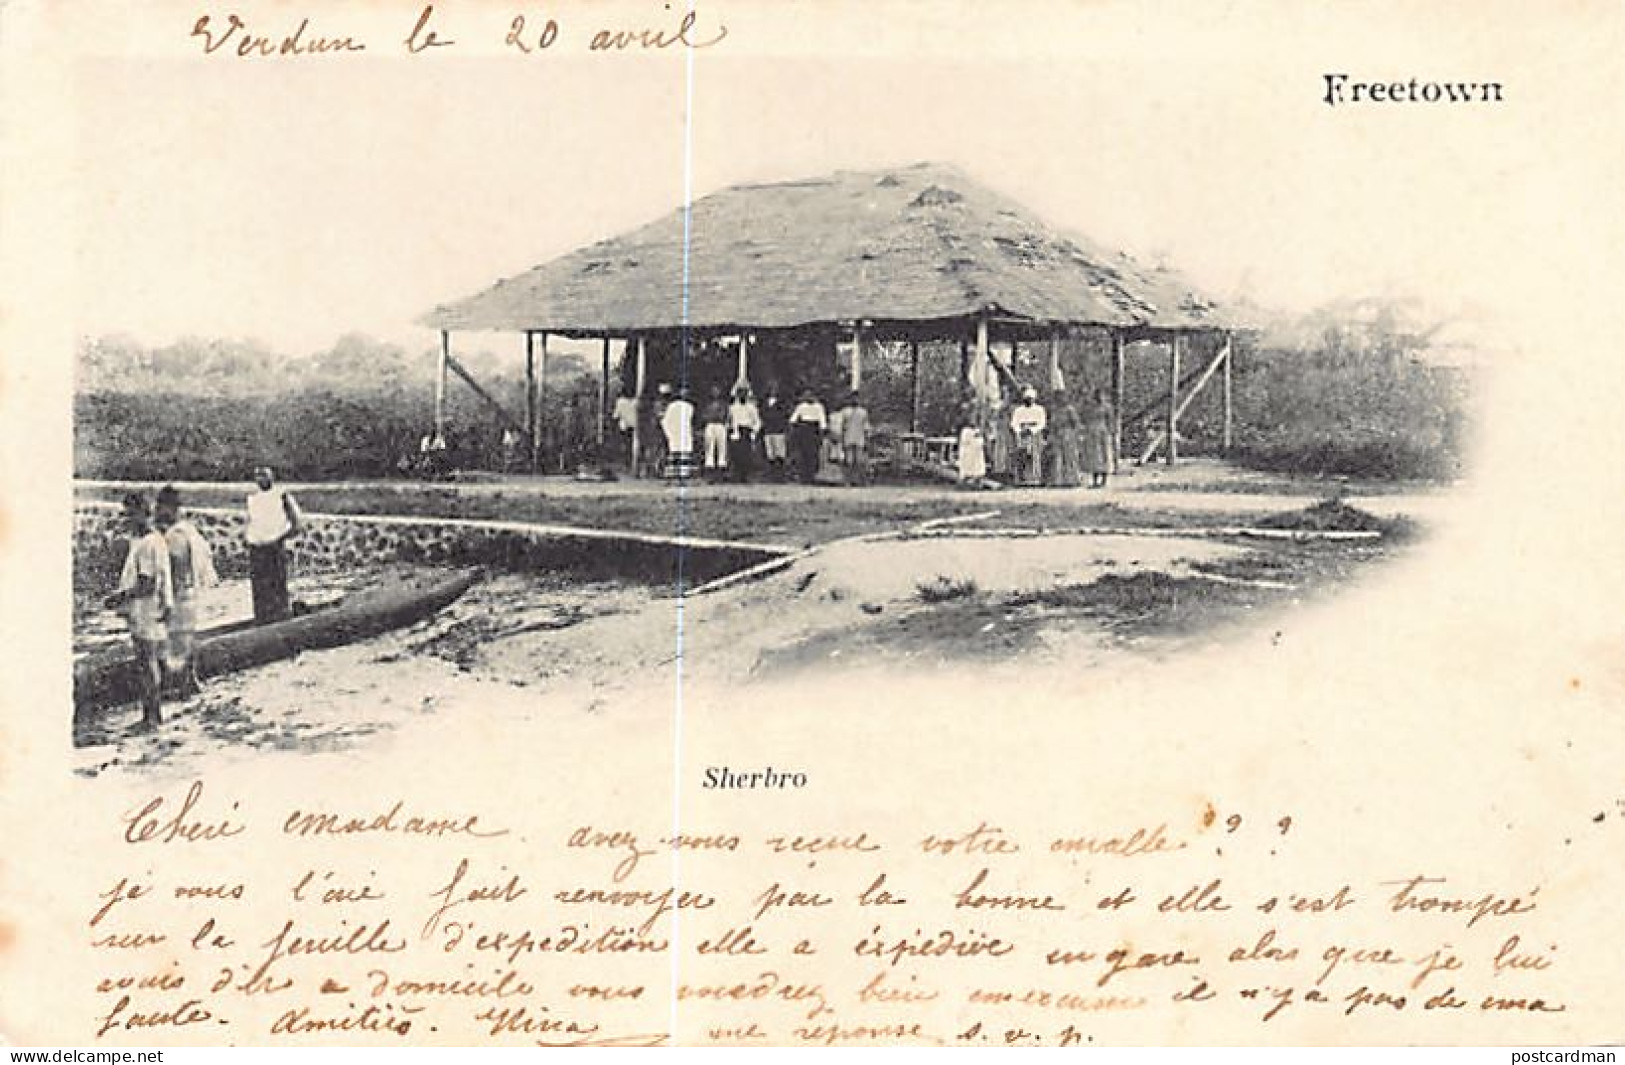 Verdun le 20 avril
Freetown
Sherbro
Cheré madame. avez-vous reçue votre malle. ? ?
je vous l'aie fait renvoyer par la bonne et elle s'est trompé
sur la feuille d'expedition elle a éxpediée en gare alors que je lui
avais dit a domicile vous voudrez bien il n'y a pas de ma
faute. Amitiés. Nina une réponse s. v. p.
https://www.delcampe.net
postcardman